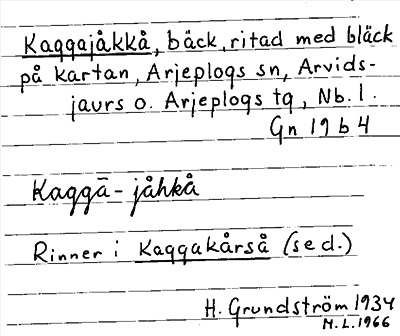 Kaggajåkkå, bäck, ritad med bläck
på kartan, Arjeplogs sn, Arvids-
jaurs o. Arjeplogs tg, Nb. l.
Gn 19 b 4
Kaggā-jåhkå
Rinner i Kaggakårså (se d.)
H. Grundström 1934
M.L. 1966